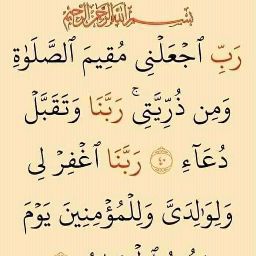 بِسْمِ ٱللَّهِ ٱلرَّحْمَٰنِ ٱلرَّحِيمِ
رَبِّ ٱجْعَلْنِى مُقِيمَ ٱلصَّلَوٰةِ
وَمِن ذُرِّيَّتِى ۚ رَبَّنَا وَتَقَبَّلْ
دُعَآءِ ٤٠ رَبَّنَا ٱغْفِرْ لِى
وَلِوَٰلِدَىَّ وَلِلْمُؤْمِنِينَ يَوْمَ